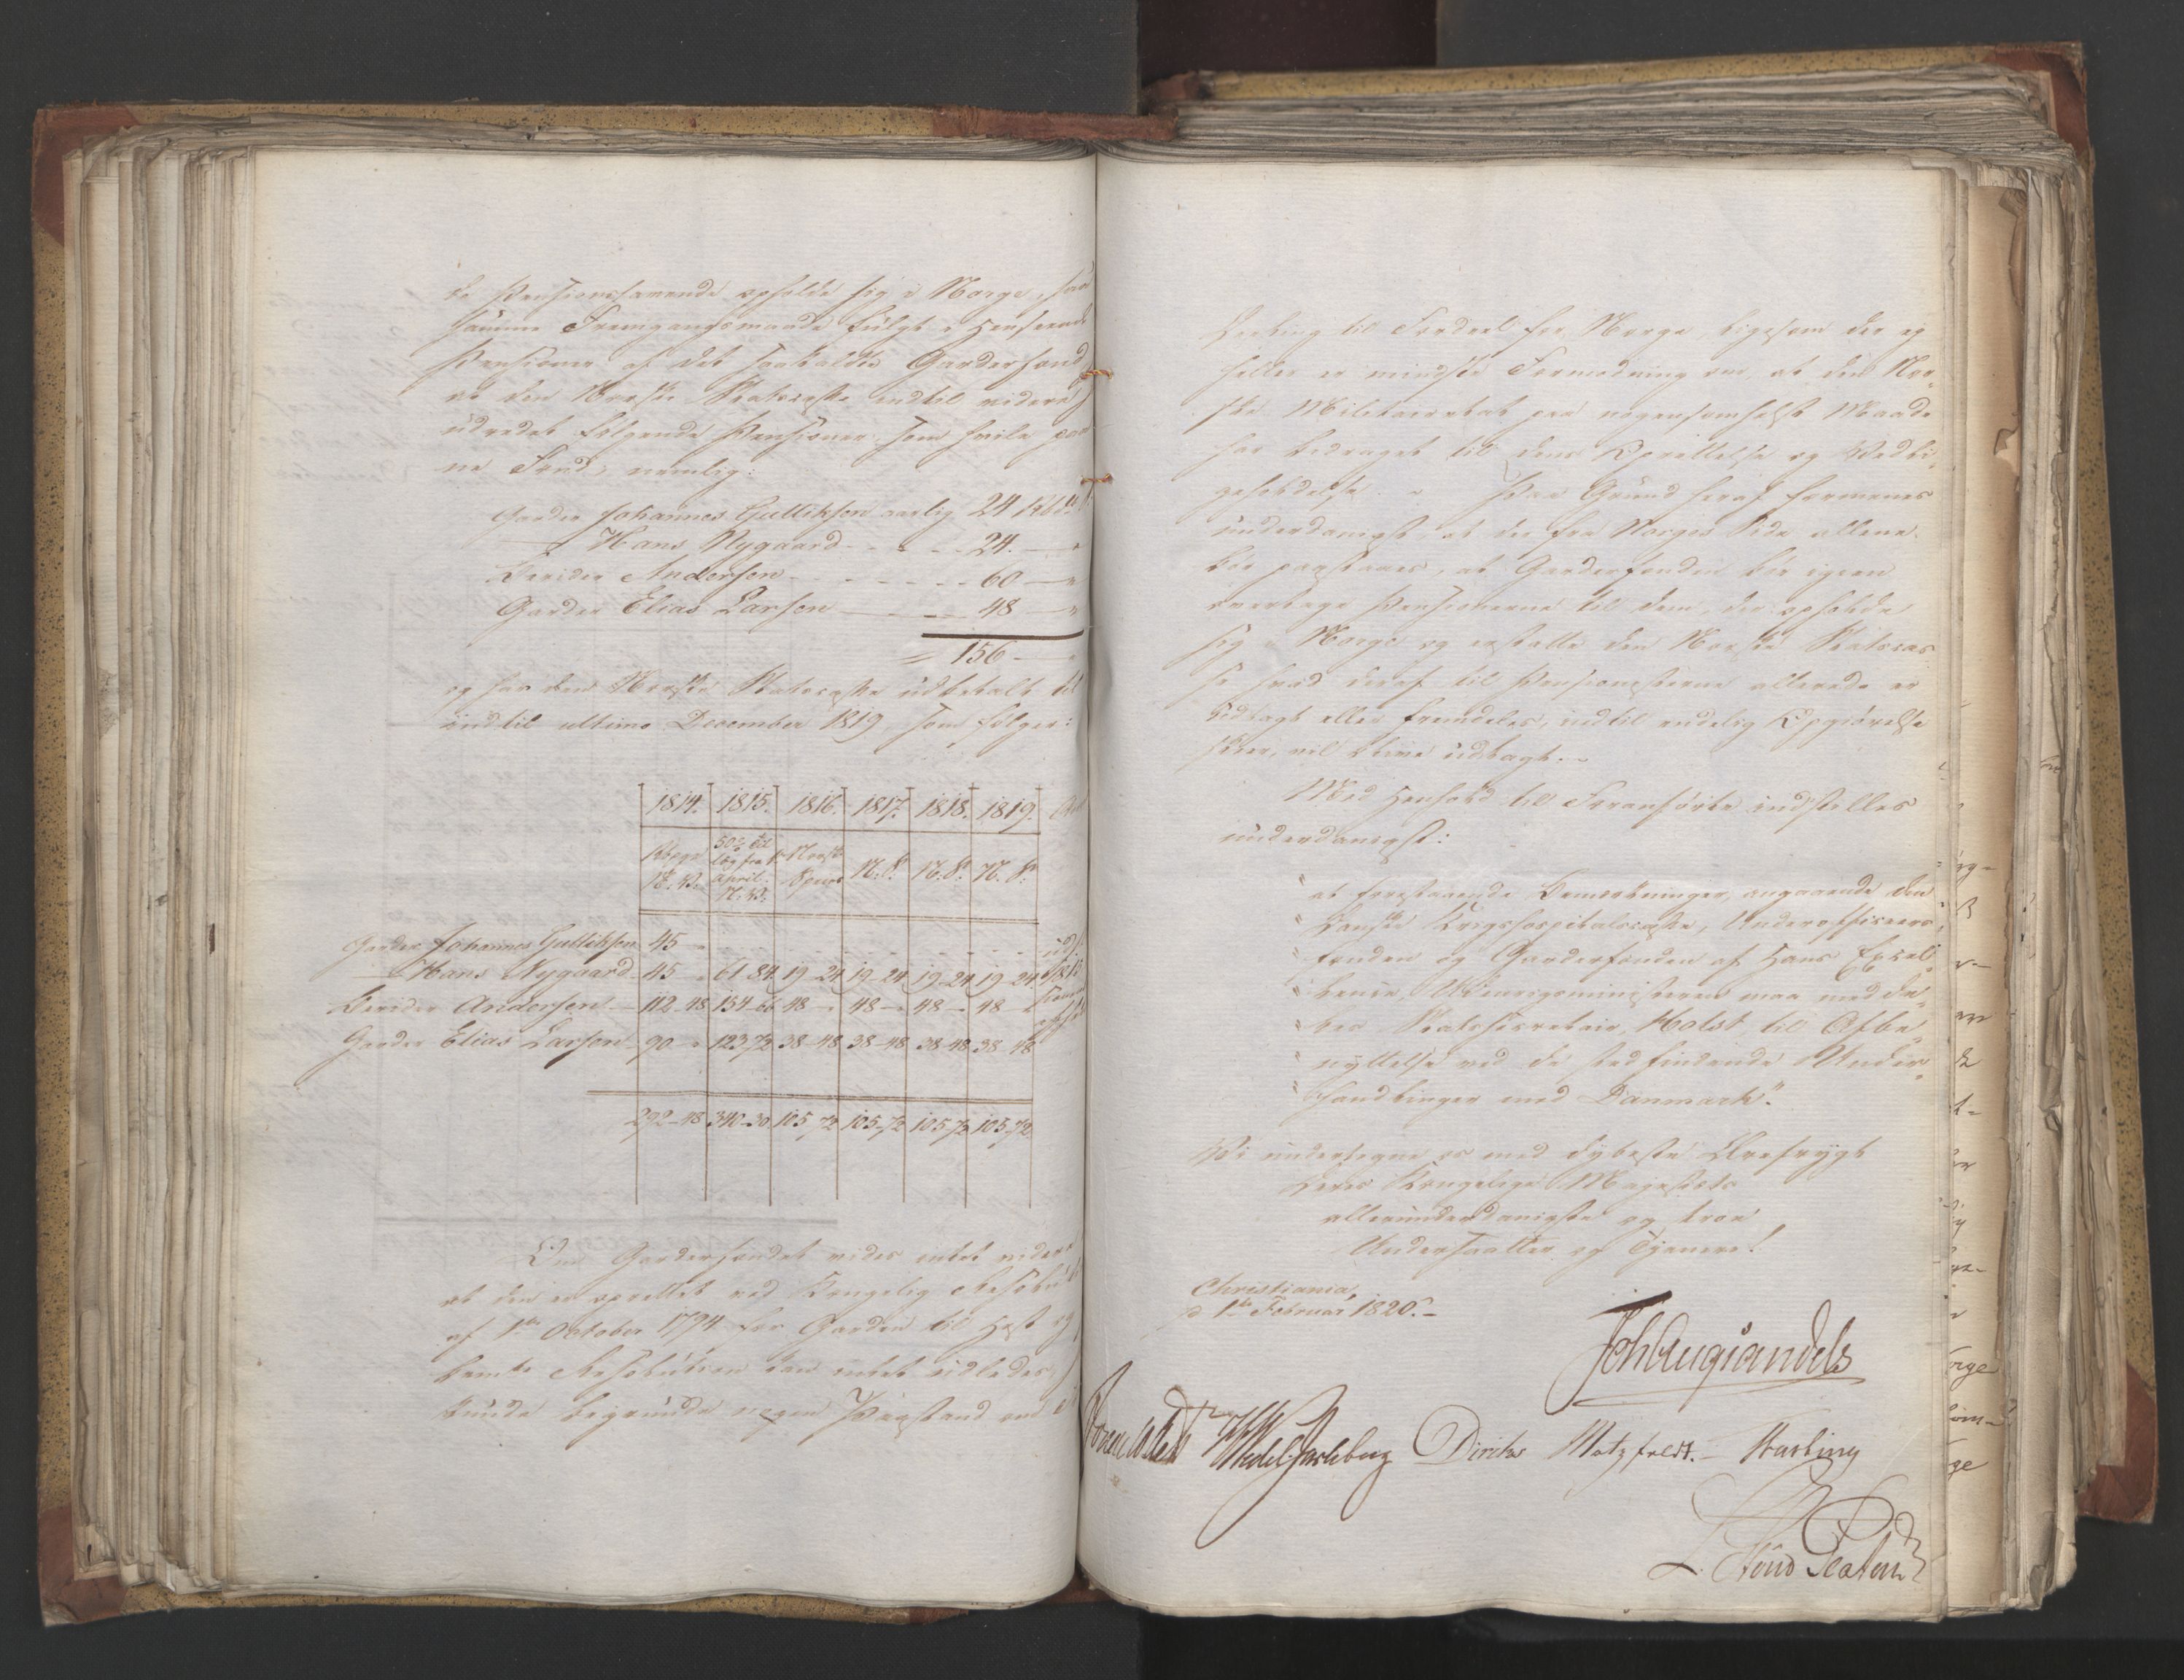 de Pensionshavende opholde sig i Norge, saa
samme Fremgangsmaade fulgt i Henseende
Pensioner af det saakaldte Garderfond
at den Norske Statscasse indtil videre
udredet følgende Pensioner, som hvile paa
ne Fond, nemlig:
Garder Johannes Gulliksen aarlig 24 Rbd
— Hans Nygaard - - - - - 24. — "
Berider Andersen - - - - - - - 60 — "
Garder Elias Larsen — — — 48 — "
= 156 —
og har den Norske Statscasse udbetalt til
indtil ultimo December 1819, som følger:
1814. 1815. 1816. 1817. 1818. 1819.
Rbpge 50% til
læg fra 1
April Norsk
Spec N. V. 16. 8. 16. 8.
Garder Johannes Gulliksen 45 -
— Hans Nygaard 45 " 61. 84. 19 - 24 19 - 24 19 - 24 19 - 24
Berider Andersen — 112 - 48 154 - 66 48 - 48 - 48 - 48 -
Garder Elias Larsen 90 - 123 72 38 - 48 38 - 48 38 - 48 38 48
292 - 48 340 - 30 105 72 105 - 72 105 - 72 105 - 72
Om Garderfondet vides intet videre
at den er oprettet ved Kongelig Resolu
af 1ste October 1794 for Garden til Hest og
bemte Resolution kan intet udledes,
kunde begrunde nogen Paastand
til Fordeel for Norge, ligesom der ej
heller er mindste Formodning om, at den Nor-
ske Militairetat paa nogensomhelst Maade
har bidraget til dens Oprettelse og Vedli-
geholdelse. - Paa Grund heraf formenes
underdanigst, at der fra Norges Side allene
bør paastaaes, at Garderfonden bør igjen
overtage Pensionerne til dem, der opholde
sig i Norge og erstatte den Norske Statscas
se hvad deraf til Pensionisterne allerede er
udlagt eller fremdeles, indtil endelig Opgiørelse
skeer, vil blive udlagt. -
Med Henhold til Foranførte indstilles
underdanigst:
" at forestaaende Bemærkninger, angaaende den
" danske Krigshospitalscasse, Underofficeers
" fonden og Garderfonden af Hans Excel
" lence Udenrigsministeren maa meddeles
" Statssecretair Holst til Afbe
" nyttelse ved de stedfindende Under
" handlinger med Danmark."
Vi undertegne os med dybeste Ærefrygt
Deres Kongelige Majestæts
allerunderdanigste og troe
Undersaatter og Tjenere!
Christiania,
d 1ste Februar 1820. -
Joh Aug Sandels
Sommerhielm Wedel Jarlsberg Diriks Motzfeldt. - Fasting
L. Stoud Platou